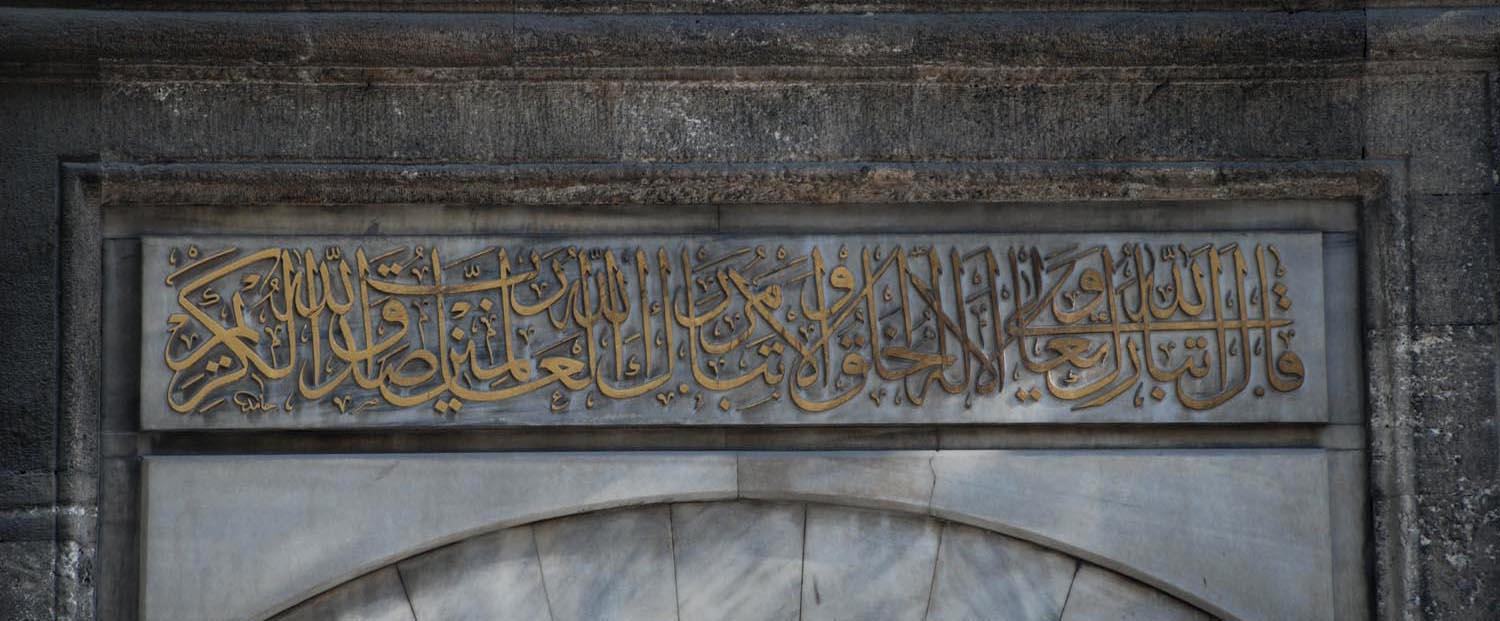 قال الله تبارك وتعالى ألا له الخلق والأمر تبارك الله رب العالمين صدق الله الكريم
حامد